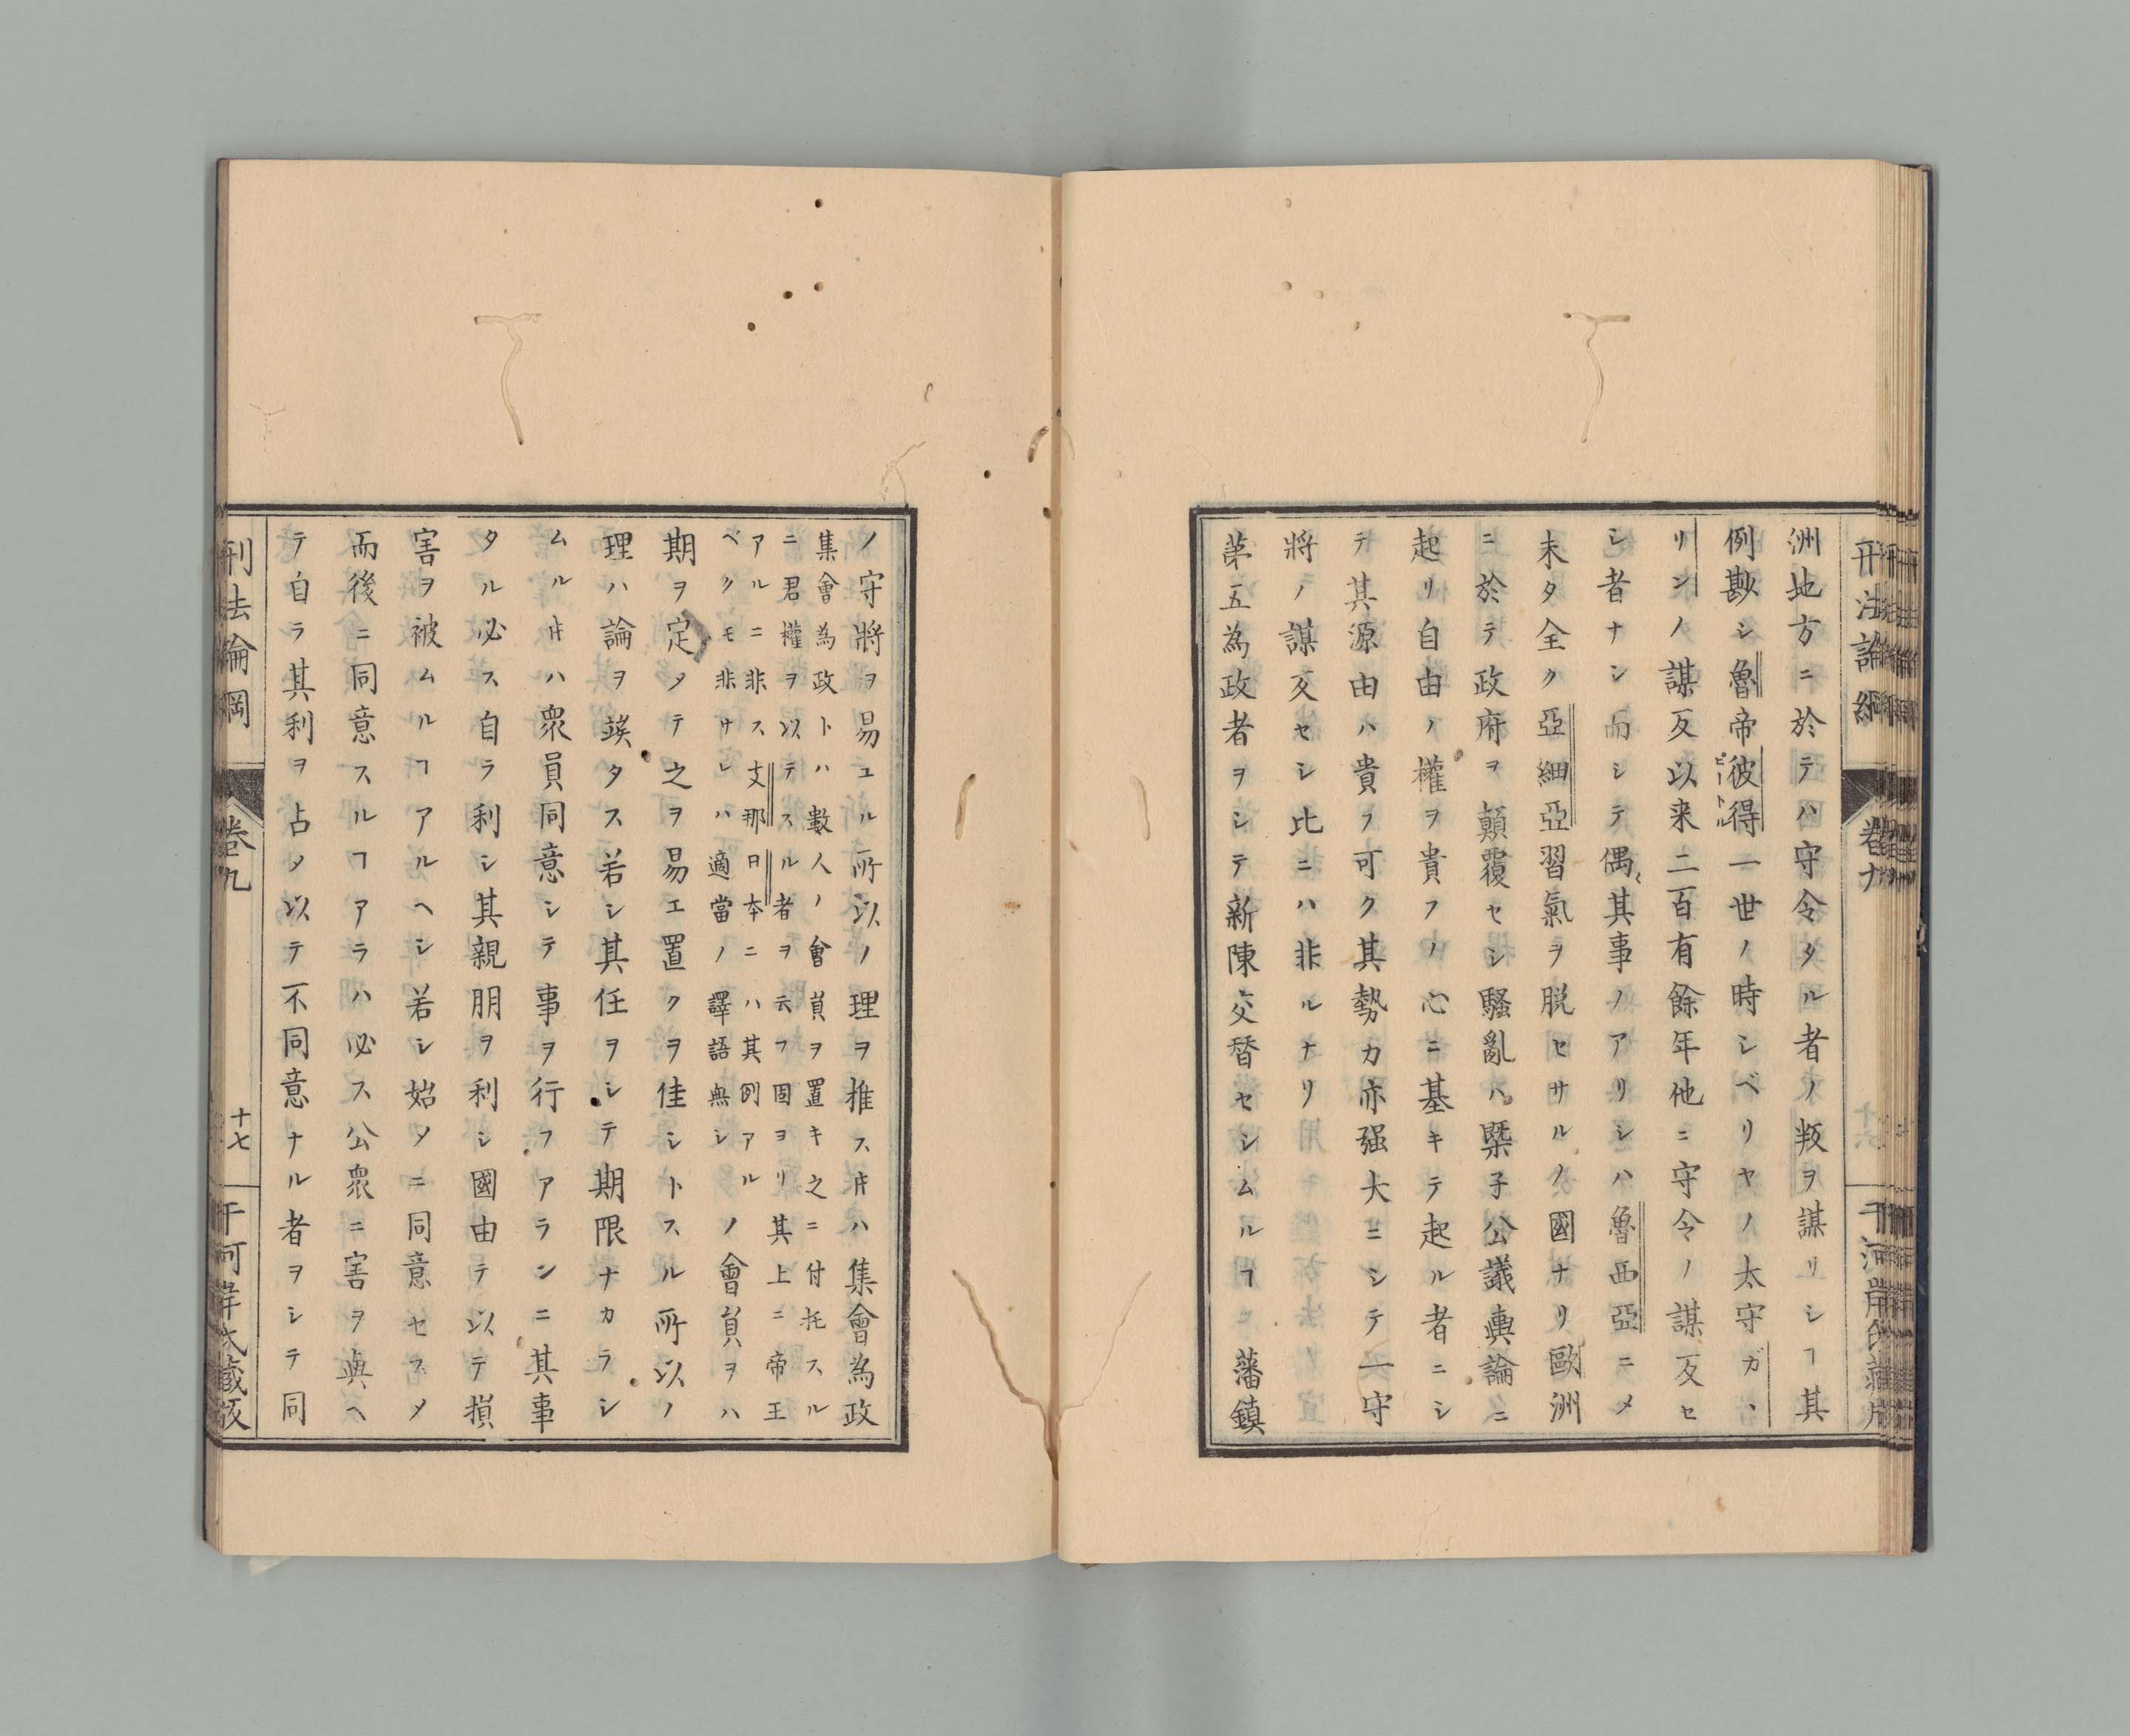 洲地方ニ於テハ守令タル者ノ叛ヲ謀リシヿ其
例尠シ魯帝彼得一世ノ時シベリヤノ太守ガヽ
ピートル
リンノ謀反以来二百有餘年他ニ守令ノ謀反セ
シ者ナシ而シテ偶〻其事ノアリシハ魯西亞ニメ
未タ全ク亞細亞習氣ヲ脱セサルノ國ナリ歐洲
ニ於テ政府ヲ顛覆セシ騒亂ハ槩子公議輿論ニ
起リ自由ノ權ヲ貴フノ心ニ基キテ起ル者ニシ
テ其源由ハ貴フ可ク其勢力亦强大ニシテ一守
將ノ謀反セシ比ニハ非ルナリ
第五為政者ヲシテ新陳交替セシムルヿ藩鎮
ノ守將ヲ易ユル所以ノ理ヲ推スㇳキハ集會為政
集會為政トハ數人ノ會員ヲ置キ之ニ付托スル
ニ君權ヲ以テスル者ヲ云フ固ヨリ其上ニ帝王
アルニ非ス支那日本ニハ其例アル
ベクモ非サレハ適當ノ譯語無シ
ノ會員ヲハ
期ヲ定メテ之ヲ易エ置クヲ佳シトスル所以ノ
理ハ論ヲ竢タス若シ其任ヲシテ期限ナカラシ
ムルㇳキハ衆員同意シテ事ヲ行フアランニ其事
タル必ス自ラ利シ其親朋ヲ利シ國由テ以テ損
害ヲ被ムルヿアルヘシ若シ始メニ同意セスメ
而後ニ同意スルヿアラハ必ス公衆ニ害ヲ與ヘ
テ自ラ其利ヲ占メ以テ不同意ナル者ヲシテ同
刑法論綱
卷九
十七
千河岸氏藏版